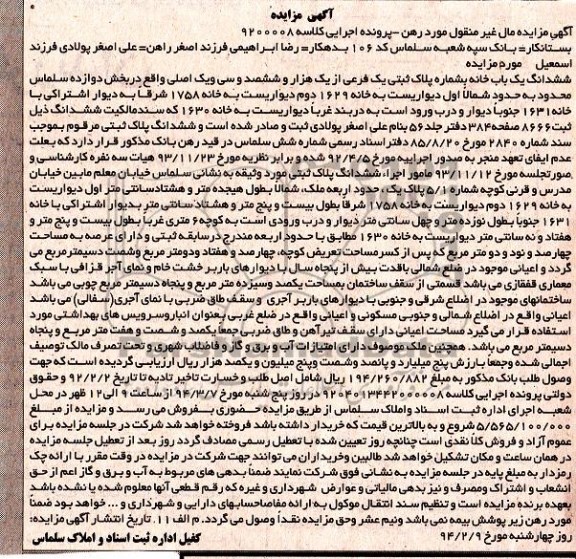 آگهی مزایده
آگهی مزایده مال غیر منقول مورد رهن -پرونده اجرایی کلاسه ۹۲۰۰۰۰۸
بستانکار= بانک سپه شعبه سلماس کد ۱۰۶ بدهکار= رضا ابراهیمی فرزند اصغر راهن= علی اصغر پولادی فرزند
اسمعیل مورد مزایده
ششدانگ یک باب خانه بشماره پلاک ثبتی یک فرعی از یک هزار و ششصد و سی ویک اصلی واقع دربخش دوازده سلماس
محدود به حدود شمالاً اول دیواریست به خانه ۱۶۲۹ دوم دیواریست به خانه ۱۷۵۸ شرقاً به دیوار اشتراکی با
خانه۱۶۳۱ جنوباً دیوار و درب ورود است به دربند غرباً دیواریست به خانه ۱۶۳۰ که سندمالکیت ششدانگ ذیل
ثبت۸۶۶۶ صفحه۳۸۴ دفتر جلد ۵۶ بنام علی اصغر پولادی ثبت و صادر شده است و ششدانگ پلاک ثبتی مرقوم بموجب
سند شماره ۲۸۴۰ مورخ ۸۵/۸/۲۰ دفتراسناد رسمی شماره شش سلماس در قید رهن بانک مذکور قرار دارد که بعلت
عدم ایفای تعهد منجر به صدور اجراییه مورخ ۹۲/۲/۵ شده و برابر نظریه مورخ ۹۳/۱۱/۲۳ هیات سه نفره کارشناسی و
صورتجلسه مورخ ۹۳/۱۱/۱۲ مامور اجراء، ششدانگ پلاک ثبتی مورد وثیقه به نشانی سلماس خیابان معلم مابین خیابان
مدرس و قرنی کوچه شماره ۵/۱ پلاک یک، حدود اربعه ملک، شمالاً بطول هیجده متر و هشتادسانتی متر اول دیواریست
به خانه ۱۶۲۹ دوم دیواریست به خانه ۱۷۵۸ شرقا بطول بیست و پنج متر و هشتاد سانتی متر بدیوار اشتراکی با خانه
۱۶۳۱ جنوباً بطول نوزده متر و چهل سانتی متر دیوار و درب ورودی است به کوچه ۶ متری غربا بطول بیست و پنج متر و
هفتاد و نه سانتی متر دیواریست به خانه ۱۶۳۰ مطابق با حدود اربعه مندرج درسابقه ثبتی و دارای عرصه به مساحت
چهارصد و نود و دو متر مربع که پس از کسرمساحت تعریض کوچه، چهارصد و هفتاد ودومتر مربع وشصت دسیمترمربع می
گردد و اعیانی موجود در ضلع شمالی باقدت بیش از پنجاه سال با دیوارهای باربر خشت خام و نمای آجر قزاقی با سبک
معماری قفقازی می باشد قسمتی از سقف ساختمان بمساحت یکصد وسیزده متر مربع و پنجاه دسیمتر مربع چوبی می باشد
ساختمانهای موجود در اضلاع شرقی و جنوبی با دیوارهای باربر آجری و سقف طاق ضربی با نمای آجری(سفالی) می باشد
اعیانی واقع در اضلاع شمالی و جنوبی مسکونی و اعیانی واقع در ضلع غربی بعنوان انباروسرویس های بهداشتی مورد
استفاده قرار می گیرد مساحت اعیانی دارای سقف تیرآهن و طاق ضربی جمعاً یکصد و شصت و هفت متر مربع و پنجاه
دسیمتر مربع می باشد. همچنین ملک موصوف دارای امتیازات آب و برق و گاز و فاضلاب شهری و تحت تصرف مالک توصیف
اجمالی شده وجمعا بارزش پنج میلیارد و پانصد وشصت وپنج میلیون و یکصد هزار ریال ارزیابی گردیده است که جهت
وصول طلب بانک مذکور به مبلغ ۱۹۴/۲۶۰/۸۸۲ ریال شامل اصل طلب و خسارت تاخیر تادیه تا تاریخ ۹۲/۲/۲ و حقوق
دولتی پرونده اجرایی کلاسه ۹۲۰۴۰۱۳۴۴۲۰۰۰۰۰۸ در روز پنج شنبه مورخ ۹۴/۳/۷ از ساعت ۹ الی ۱۲ ظهر در محل
شعبه اجرای اداره ثبت اسناد و املاک سلماس از طریق مزایده حضوری بفروش می رسد و مزایده از مبلغ
۵/۵۶۵/۱۰۰/۰۰۰ شروع و به بالاترین قیمت که خریدار داشته باشد فروخته خواهد شد شرکت در جلسه مزایده برای
عموم آزاد و فروش کلاً نقدی است چنانچه روز تعیین شده با تعطیل رسمی مصادف گردد روز بعد از تعطیل جلسه مزایده
در همان ساعت و مکان تشکیل خواهد شد طالبین وخریداران می توانند جهت شرکت در مزایده در وقت مقرر با ارائه چک
رمزدار به مبلغ پایه در جلسه مزایده به نشانی فوق شرکت نمایند ضمناً بدهی های مربوط به آب و برق و گاز اعم از حق
انشعاب و اشتراک ومصرف و نیز بدهی مالیاتی و عوارض شهرداری و غیره که رقم قطعی آنها معلوم شده یا نشده باشد
بعهده برنده مزایده است و تنظیم سند انتقال موکول به ارائه مفاصاحسابهای دارایی و شهرداری و ... خواهد بود ضمناً
مورد رهن زیر پوشش بیمه نمی باشد ونیم عشر وحق مزایده نقداً وصول می گردد. م الف ۱۱. تاریخ انتشار آگهی مزایده:
روز چهارشنبه مورخ ۹۴/۲/۹
کفیل اداره ثبت اسناد و املاک سلماس